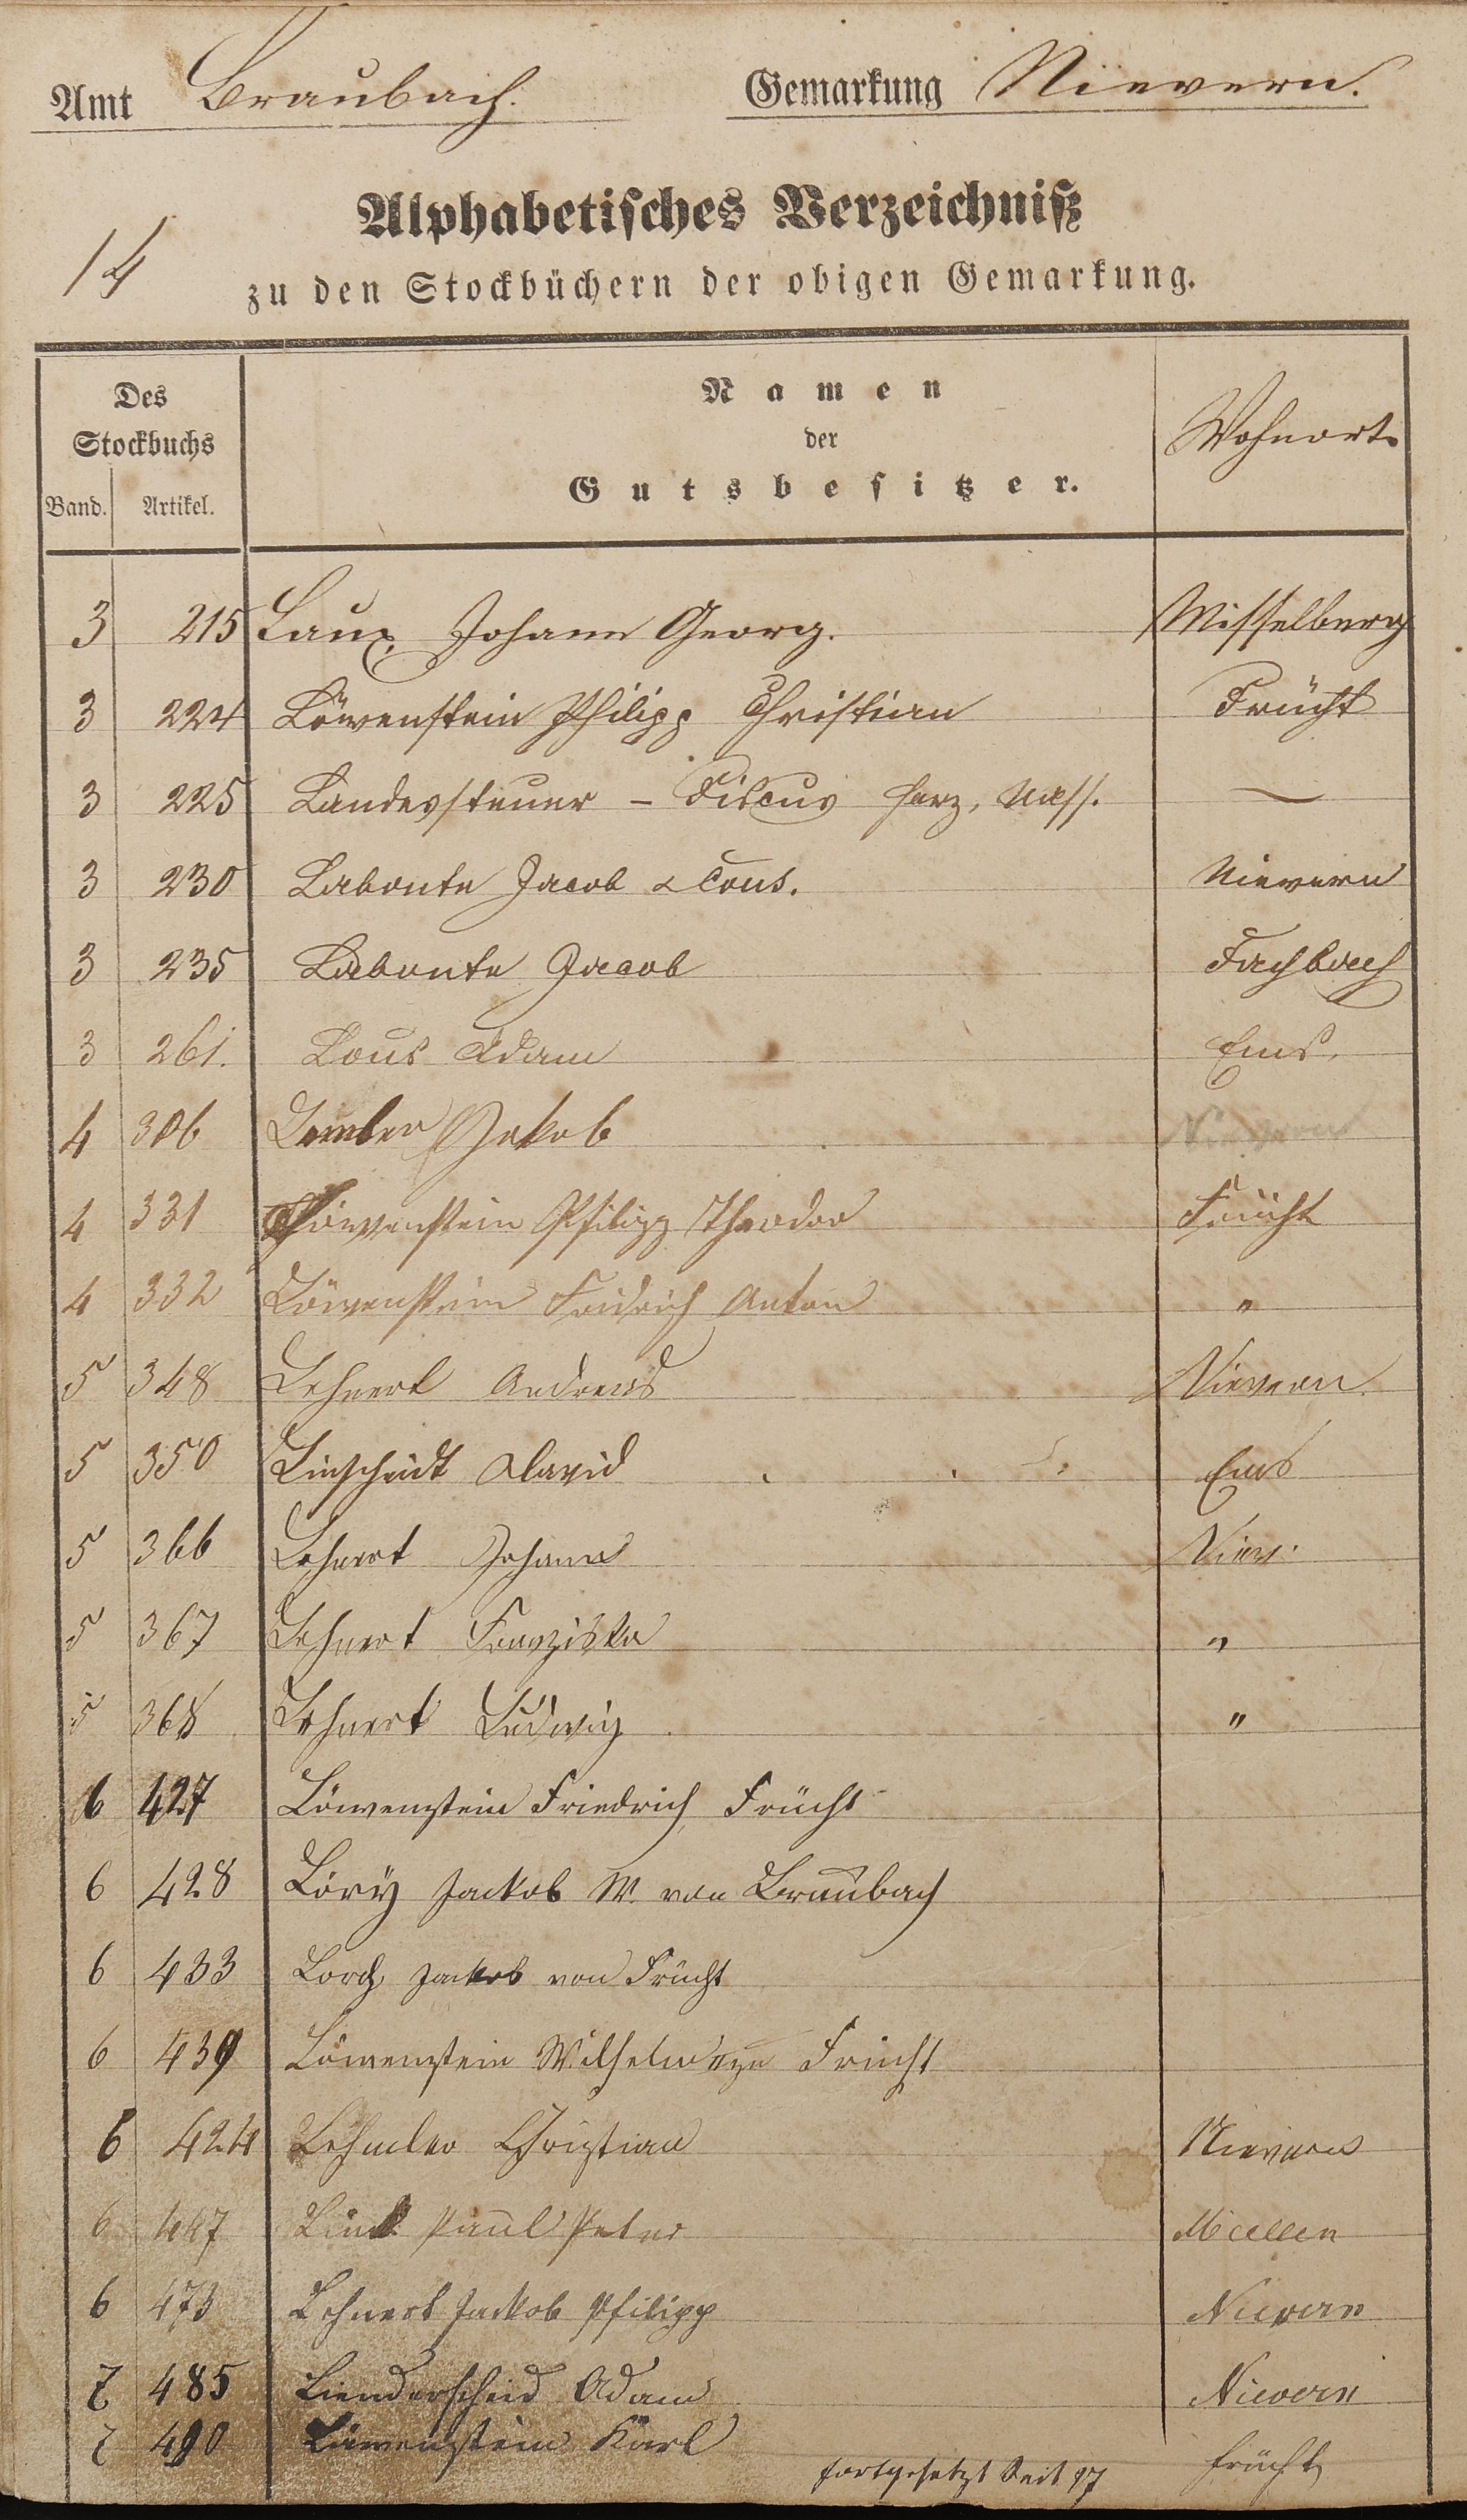 Amt Braubach. Gemarkung Nievern.
Alphabetisches Verzeichniß
14
zu den Stockbüchern der obigen Gemarkung.
Des Stockbuchs
Band. Artikel.
Namen
der
Gutsbesitzer.
Wohnort
3 215 Laux, Johann Georg. Misselberg
3 224 Löwenstein Philipp Christian Frücht
3 225 Landessteuer - Fiscus Herz. Nass. —
3 230 Labonte Jacob & Cons. Nievern
3 235 Labonte Jacob Fachbach
3 261. Lous Adam Ems.
4 306 Jakob Nievern
4 331 Löwenstein Philipp Theodor Frücht
4 332 Löwenstein Fridrich Anton "
5 348 Lehnert Andreas Nievern.
5 350 Linscheidt David Ems
5 366 Lehnert Johann Niev.
5 367 Lehnert Franziska "
5 368 Lehnert Ludwig "
6 427 Löwenstein Friedrich, Frücht
6 428 Löry Jackob W. von Braubach
6 433 Lorch Jackob von Frücht
6 439 Löwenstein Wilhelm zu Frücht
6 424 Lehmler Christian Nievern
6 447 Link Paul Peter Miellen
6 473 Lehnert Jackob Philipp Nievern
7 485 Lienderscheid Adam Nievern
7 490 Löwenstein Karl Frücht
fortgesetzt Seit 97